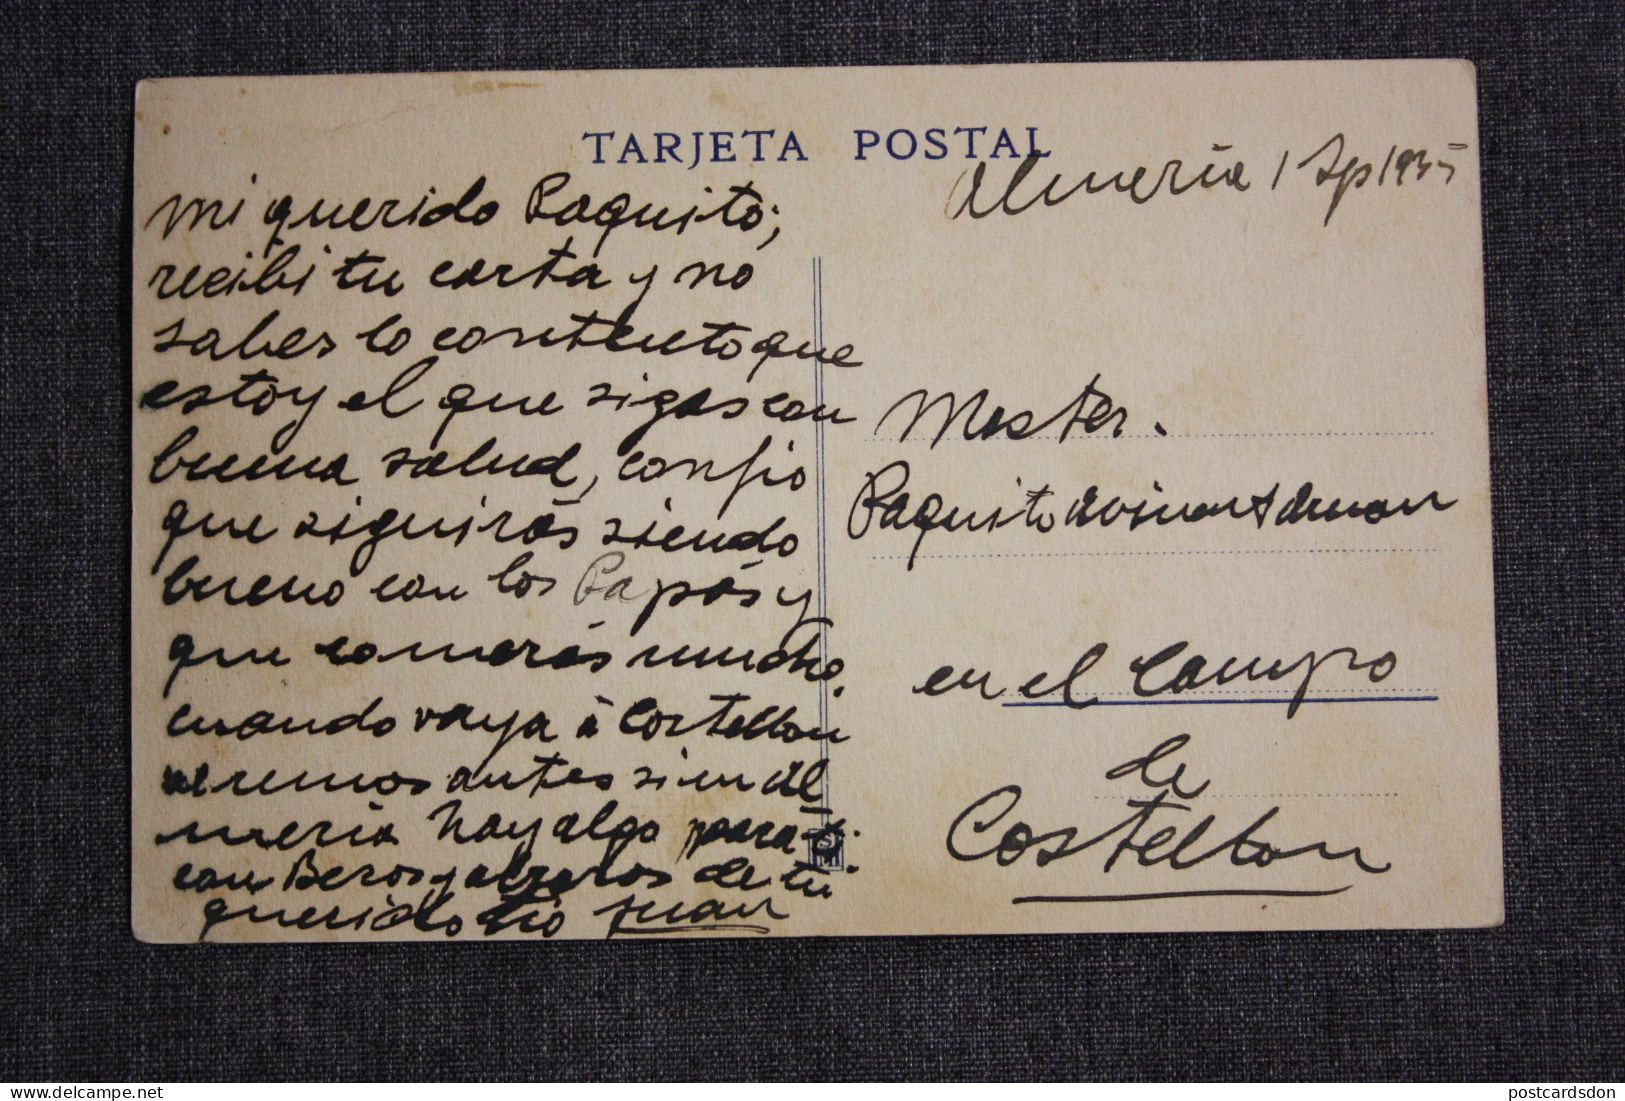 TARJETA POSTAL
Almeria 1 Sp 1935
mi querido Paquito;
recibi tu carta y no
sabes lo contento que
estoy el que sigas con
buena salud, confio
que siguirás siendo
bueno con los Papás y
que comerás mucho.
cuando vaya á Castellon
veremos antes si en Al
meria hay algo para ti
con Besos y abrazos de tu
querido tio Juan
Master.
Paquito
en el Campo
de
Castellon
postcardsdon